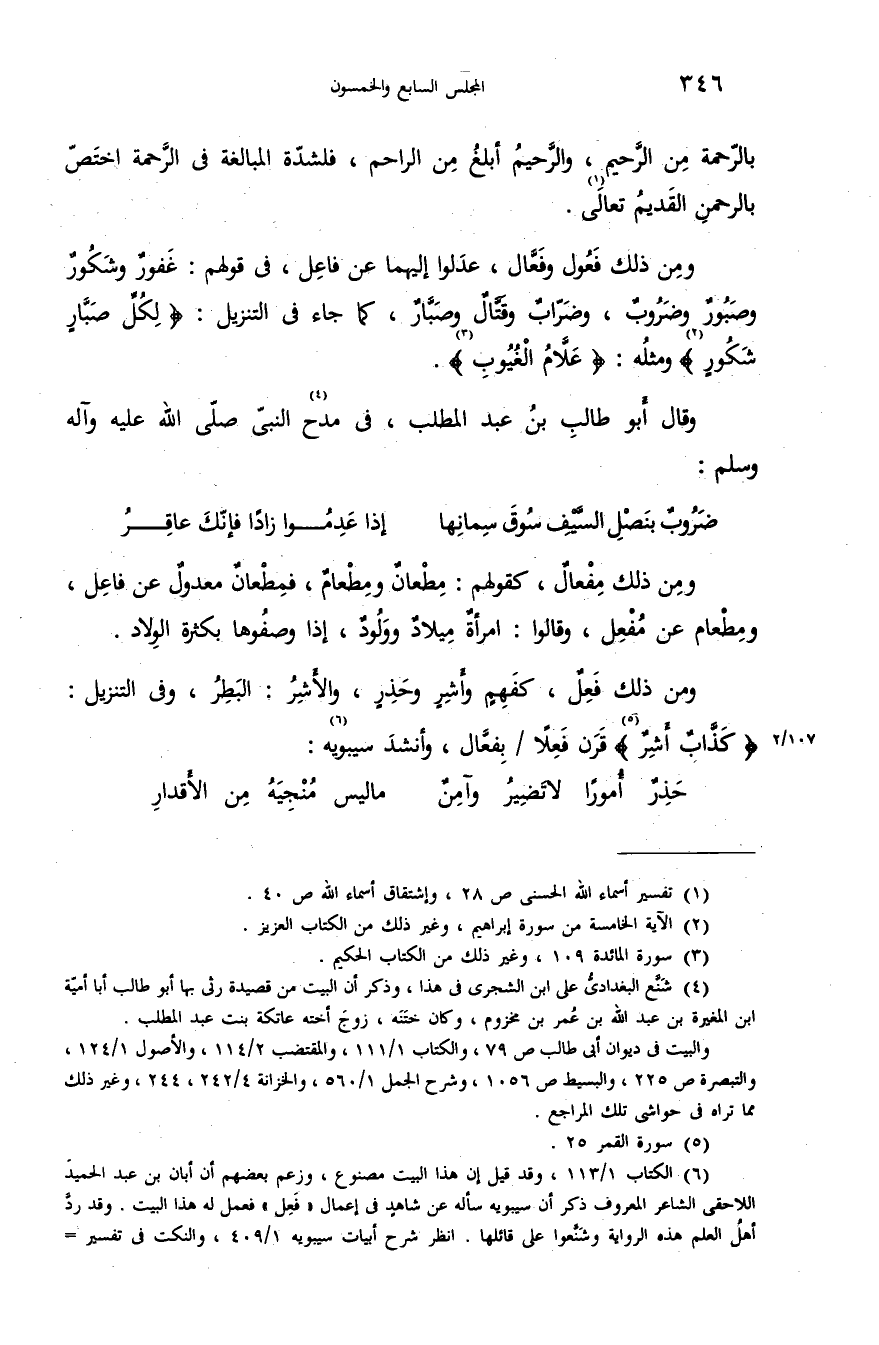 ٣٤٦ المجلس السابع والخمسون
بالرّحمة مِن الرَّحيمِ ، والرَّحيمُ أبلغُ مِن الراحم ، فلشدّة المبالغة فى الرَّحمة اختَصّ
بالرحمنِ القَديمُ تعالَى(١) .
ومِن ذلك فَعُول وفَعَّال ، عدَلوا إليهما عن فاعِل ، فى قولهم : غَفورٌ وشَكُورٌ
وصَبُورٌ وضَرُوبٌ ، وضَرّابٌ وقَتَّالٌ وصَبَّارٌ ، كما جاء فى التنزيل : ﴿ لِكُلِّ صَبَّارٍ
شَكُورٍ(٢) ﴾ ومثلُه : ﴿ عَلَّامُ الْغُيُوبِ(٣) ﴾ .
وقال أَبو طالبِ بنُ عبد المطلب ، فى مدح(٤) النبىّ صلّى الله عليه وآله
وسلم :
ضَرُوبٌ بنَصْلِ السَّيْفِ سُوقَ سِمانِها إذا عَدِمُـــوا زادًا فإنّكَ عاقِـــرُ
ومِن ذلك مِفْعالٌ ، كقولهم : مِطْعانٌ ومِطْعامٌ ، فمِطْعانٌ معدولٌ عن فاعِل ،
ومِطْعام عن مُفْعِل ، وقالوا : امرأةٌ مِيلادٌ ووَلُودٌ ، إذا وصفُوها بكثرة الوِلاد .
ومن ذلك فَعِلٌ ، كفَهِمٍ وأَشِرٍ وحَذِرٍ ، والأَشِرُ : البَطِرُ ، وفى التنزيل :
﴿ كَذَّابٌ أَشِرٌ(٥) ﴾ قَرَن فَعِلًا / بِفعَّال ، وأنشدَ سيبويه(٦) : ٢/١٠٧
حَذِرٌ أُمورًا لاتَضِيرُ وآمِنٌ ماليس مُنْجِيَهُ مِن الأَقدارِ
(١) تفسير أسماء الله الحسنى ص ٢٨ ، وإشتقاق أسماء الله ص ٤٠ .
(٢) الآية الخامسة من سورة إبراهيم ، وغير ذلك من الكتاب العزيز .
(٣) سورة المائدة ١٠٩ ، وغير ذلك من الكتاب الحكيم .
(٤) شَنَّع البغدادىُّ على ابن الشجرى فى هذا ، وذكر أن البيت من قصيدة رثى بها أبو طالب أبا أميّة
ابن المغيرة بن عبد الله بن عُمر بن مخزوم ، وكان ختَنَه ، زوجَ أخته عاتكة بنت عبد المطلب .
والبيت فى ديوان أبى طالب ص ٧٩ ، والكتاب ١١١/١ ، والمقتضب ١١٤/٢ ، والأصول ١٢٤/١ ،
والتبصرة ص ٢٢٥ ، والبسيط ص ١٠٥٦ ، وشرح الجمل ٥٦٠/١ ، والخزانة ٢٤٢/٤ ، ٢٤٤ ، وغير ذلك
مما تراه فى حواشى تلك المراجع .
(٥) سورة القمر ٢٥ .
(٦) الكتاب ١١٣/١ ، وقد قيل إن هذا البيت مصنوع ، وزعم بعضهم أن أبان بن عبد الحميدَ
اللاحقى الشاعر المعروف ذكر أن سيبويه سأله عن شاهدٍ فى إعمال « فَعِل » فعمل له هذا البيت . وقد ردَّ
أهلُ العلم هذه الرواية وشنَّعوا على قائلها . انظر شرح أبيات سيبويه ٤٠٩/١ ، والنكت فى تفسير =